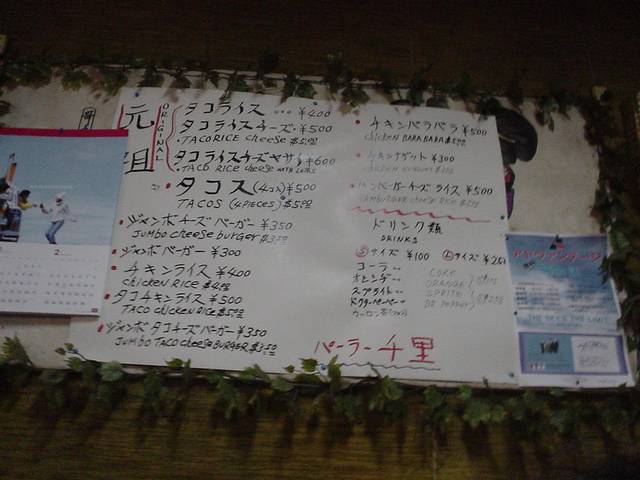 元祖
ORIGINAL
タコライス ... ¥400
タコライスチーズ・¥500
TACORICE cheese $5.00
タコライスチーズヤサイ¥600
TACO RICE cheese with
タコス (4コ入)¥500
TACOS (4PIECES) $5.00
ジャンボチーズバーガー ¥350
JUMBO cheese burger $3.50
ジャンボバーガー ¥300
チキンライス ¥400
chicken RICE $4.00
タコチキンライス ¥500
TACO chicken RICE $5.00
ジャンボタコチーズバーガー ¥350
JUMBO TACO cheese BURGER $3.50
チキンバラバラ ¥500
chicken BARA BARA $5.00
チキンナゲット ¥300
ハンバーガーチーズライス ¥500
HAMBURGER cheese RICE
ドリンク類
DRINKS
Sサイズ ¥100 Lサイズ ¥250
コーラ COKE
オレンジ ORANGE
スプライト SPRITE
ドクターペーパー DR PEPPER
ウーロン茶
パーラー千里
2